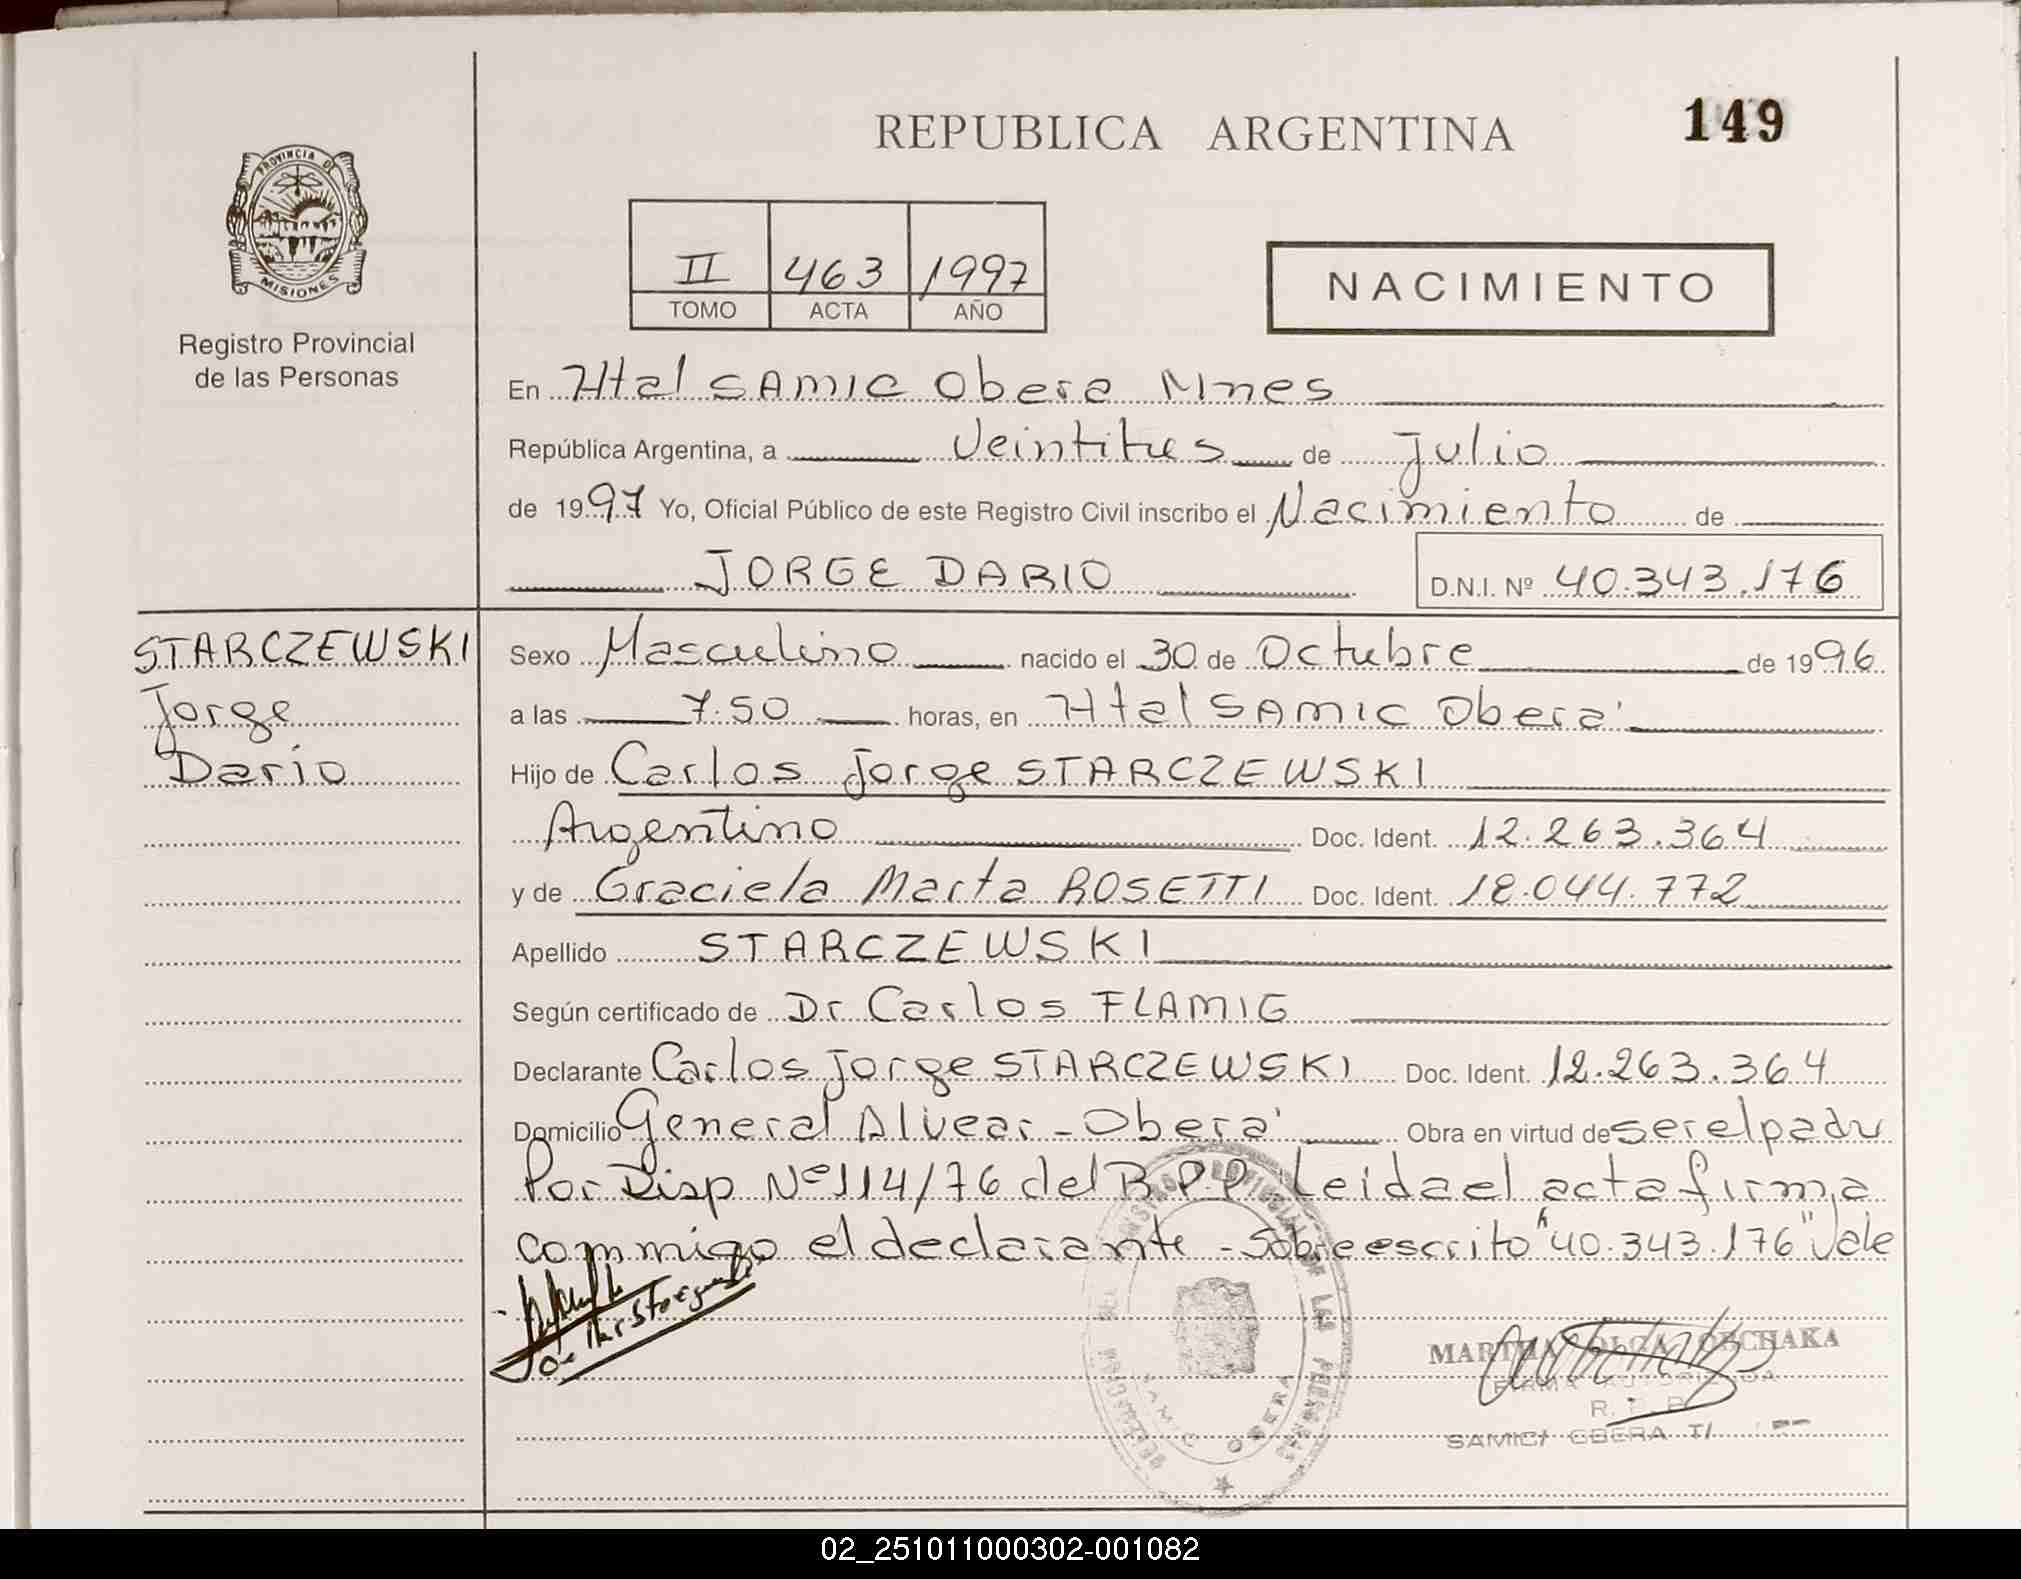 REPUBLICA ARGENTINA
149
PROVINCIA DE
MISIONES
Registro Provincial
de las Personas
II 463 1997
TOMO ACTA AÑO
NACIMIENTO
En Htal SAMIC Obera Mnes
República Argentina, a Veintitres de Julio
de 1997 Yo, Oficial Público de este Registro Civil inscribo el Nacimiento de
JORGE DARIO D.N.I. Nº 40.343.176
STARCZEWSKI
Jorge
Dario
Sexo Masculino nacido el 30 de Octubre de 1996
a las 7.50 horas, en Htal SAMIC Oberá
Hijo de Carlos Jorge STARCZEWSKI
Argentino Doc. Ident. 12.263.364
y de Graciela Marta ROSETTI Doc. Ident. 18.044.772
Apellido STARCZEWSKI
Según certificado de Dr Carlos FLAMIG
Declarante Carlos Jorge STARCZEWSKI Doc. Ident. 12.263.364
Domicilio General Alvear - Oberá Obra en virtud de ser el padre
Por Disp Nº 114/76 del R.P.P. Leida el acta firma
conmigo el declarante - Sobreescrito "40.343.176" Vale
MARTHA OLGA OBCHAKA
FIRMA AUTORIZADA
R. P. P.
SAMIC OBERA
02_251011000302-001082